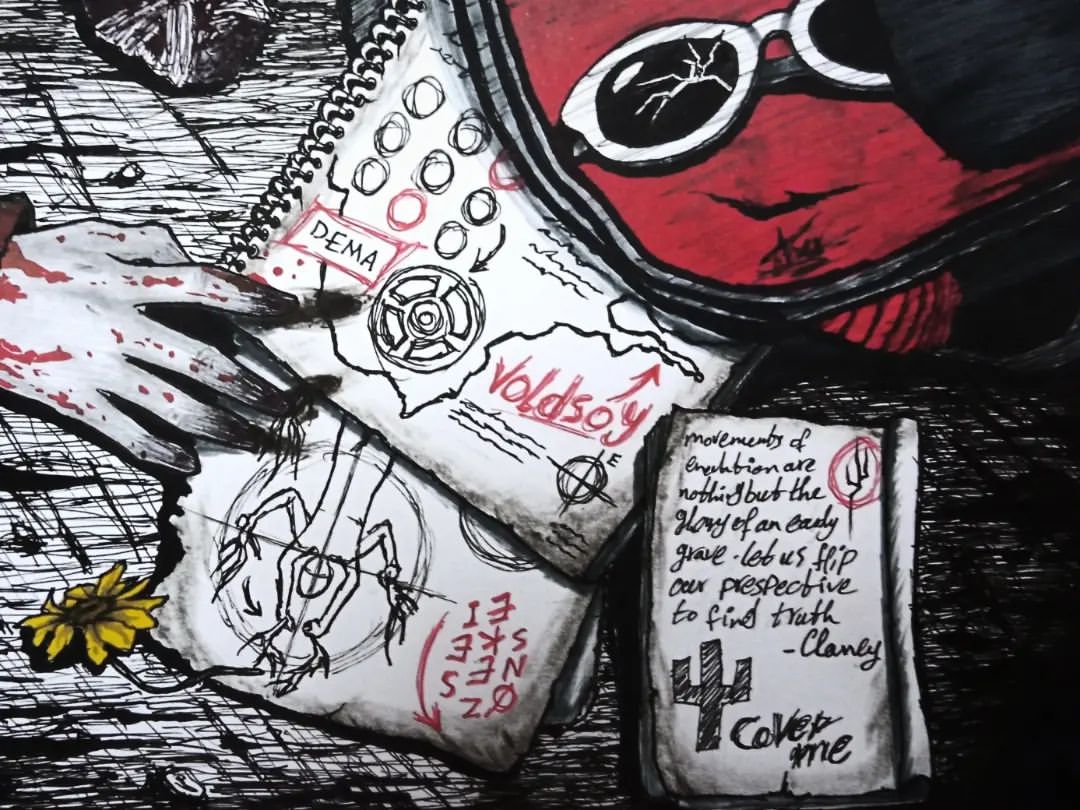 DEMA
Voldsoy
E
movements of
emulation are
nothing but the
glory of an early
grave - let us flip
our prespective
to find truth
- Clancy
cover
me